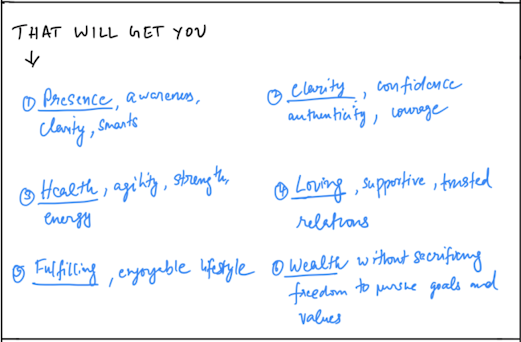 THAT WILL GET YOU
↓
① Presence, awareness,
clarity, smarts
② Clarity, confidence
authenticity, courage
③ Health, agility, strength,
energy
④ Loving, supportive, trusted
relations
⑤ Fulfilling, enjoyable lifestyle
⑥ Wealth without sacrificing
freedom to pursue goals and
values